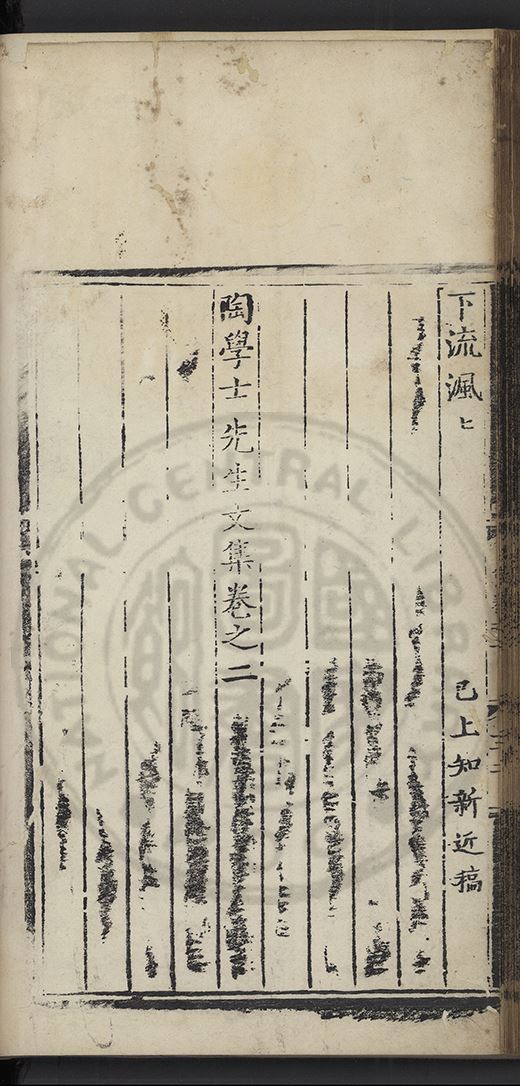 下流渢〻 已上知新近稿
陶學士先生文集卷之二